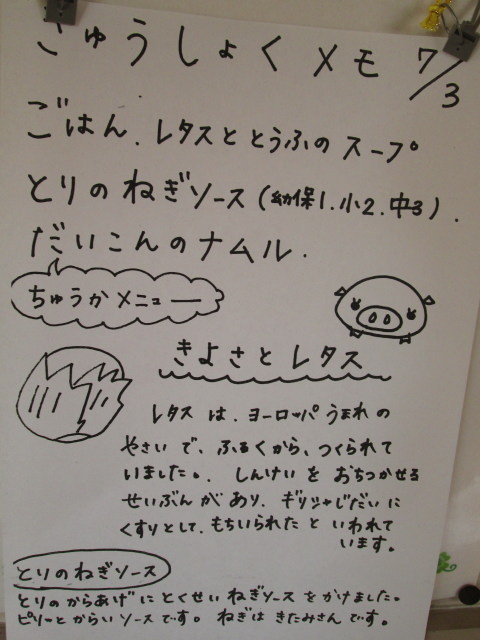 きゅうしょくメモ 7/3
ごはん、レタスととうふのスープ
とりのねぎソース(幼保1.小2.中3).
だいこんのナムル.
ちゅうかメニュー
きよさとレタス
レタスは、ヨーロッパうまれの
やさいで、ふるくから、つくられて
いました。. しんけいをおちつかせる
せいぶんがあり、ギリシャじだいに
くすりとして、もちいられたといわれて
います。
とりのねぎソース
とりのからあげにとくせいねぎソースをかけました。
ピリーッとからいソースです。ねぎはきたみさんです。